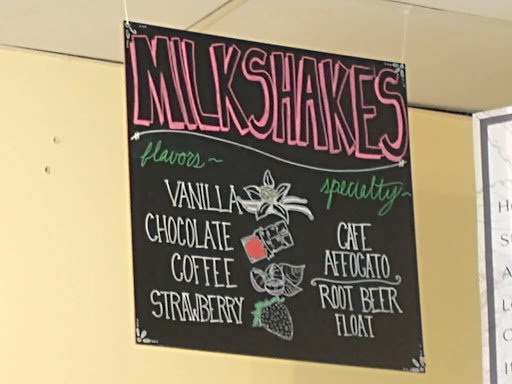 MILKSHAKES
flavors~
VANILLA
CHOCOLATE
COFFEE
STRAWBERRY
specialty~
CAFE
AFFOGATO
ROOT BEER
FLOAT